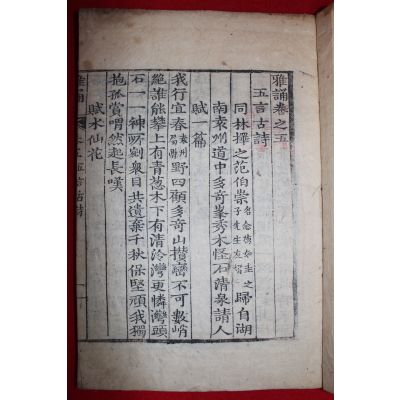 雅誦卷之五
五言古詩
同林擇之范伯崇名念德如圭之子先生友壻歸自湖
南袁州道中多奇峯秀木怪石清泉請人
賦一篇
我行宜春袁州屬縣野四顧多奇山攢巒不可數峭
絕誰能攀上有青蔥木下有清泠灣更憐灣頭
石一一神所剜衆目共遺棄千秋保堅頑我獨
抱孤賞喟然起長嘆
賦水仙花
雅誦 卷之五 五言古詩 一